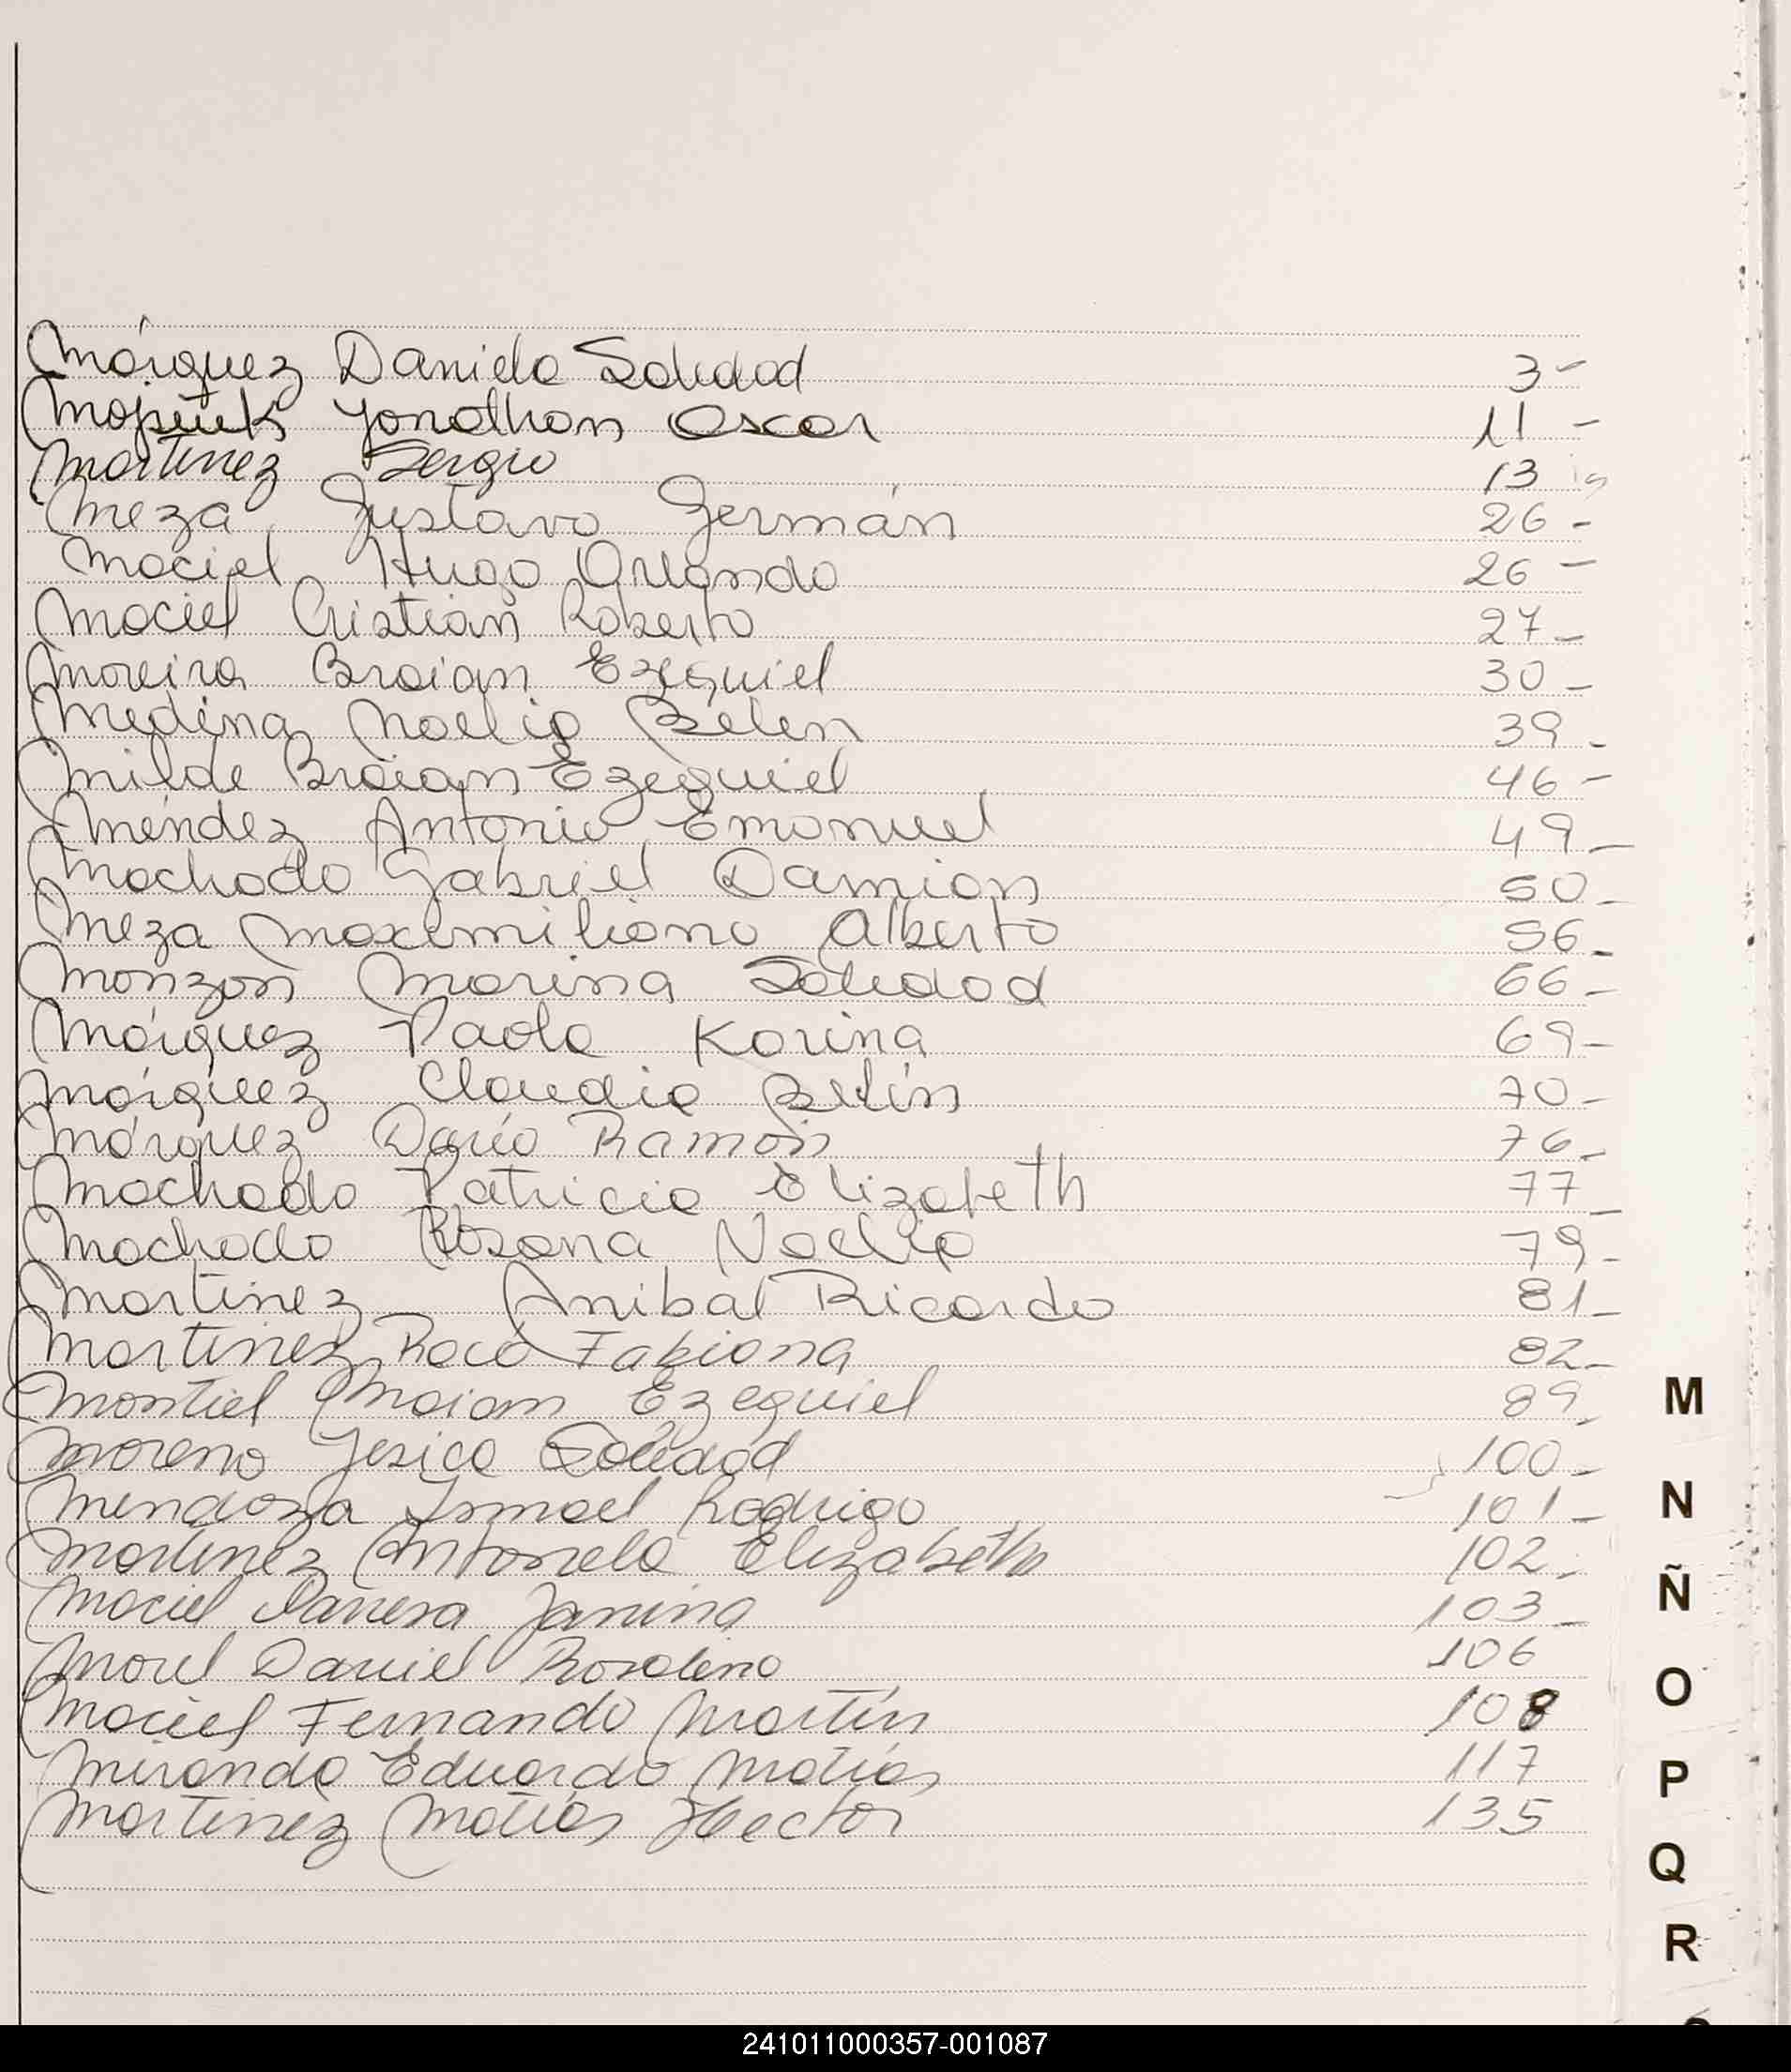 Márquez Daniela Soledad 3-
Jonathan Oscar 11 -
Martinez Sergio 13
Meza Gustavo Germán 26 -
Maciel Hugo Orlando 26 -
Maciel Cristian Roberto 27 -
Moreira Braian Ezequiel 30 -
Medina Noelia Belen 39 -
Milde Braian Ezequiel 46 -
Méndez Antonio Emanuel 49 -
Machado Gabriel Damian 50 -
Meza Maximiliano Alberto 56 -
Monzon Marina Soledad 66 -
Márquez Paola Karina 69 -
Márquez Claudia Belén 70 -
Márquez Darío Ramón 76 -
Machado Patricia Elizabeth 77 -
Machado Rosana Noelia 79 -
Martinez Anibal Ricardo 81 -
Martinez Fabiana 82 -
Montiel Maian Ezequiel 89 -
Moreno Yesica Soledad 100 -
Mendoza Ismael Rodrigo 101 -
Martinez Antonela Elizabeth 102 -
Maciel Vanesa Janina 103 -
Morel Daniel Rosalino 106
Maciel Fernando Martín 108
Miranda Eduardo Matías 117
Martinez Matías Hector 135
M
N
Ñ
O
P
Q
R
241011000357-001087